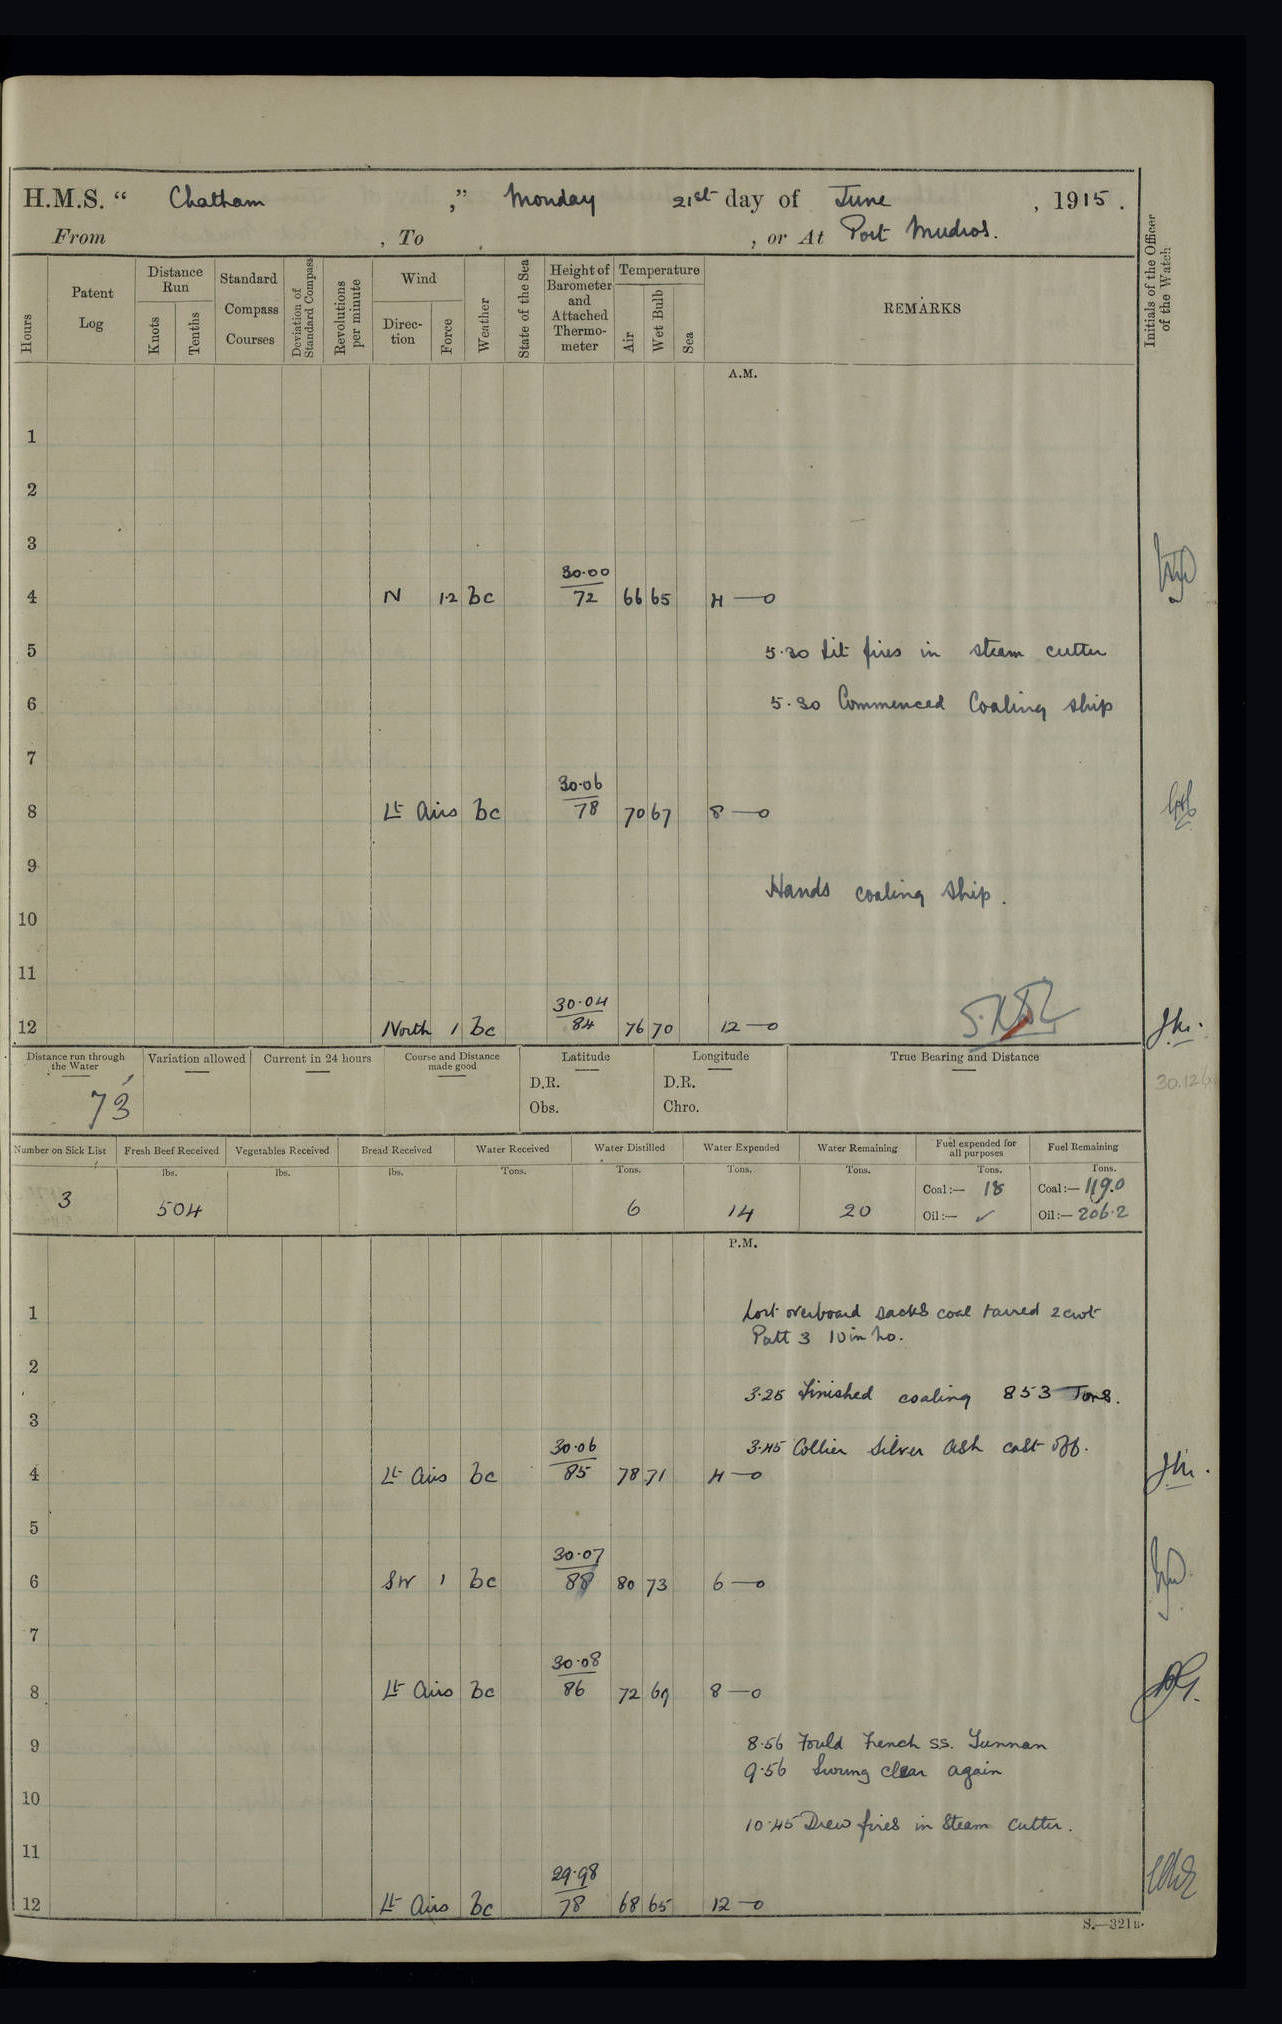 H.M.S. “ Chatham ,” Monday 21st day of June , 1915.
From , To , or At Port Mudros.
Hours
Patent Log
Distance Run
Knots
Tenths
Standard Compass Courses
Deviation of Standard Compass
Revolutions per minute
Wind
Direc-tion
Force
Weather
State of the Sea
Height of Barometer and Attached Thermo-meter
Temperature
Air
Wet Bulb
Sea
REMARKS
Initials of the Officer of the Watch
A.M.
1
2
3
30.00
4 N 1.2 bc 72 66 65 4 —o
5 5.30 Lit fires in steam cutter
6 5.30 Commenced Coaling ship
7
30.06
8 Lt Airs bc 78 70 67 8 —o
9
Hands coaling ship.
10
11
30.04
12 North 1 bc 84 76 70 12 —o
Distance run through the Water
Variation allowed
Current in 24 hours
Course and Distance made good
Latitude
Longitude
True Bearing and Distance
D.R. D.R.
Obs. Chro.
73
30.126
Number on Sick List
Fresh Beef Received
Vegetables Received
Bread Received
Water Received
Water Distilled
Water Expended
Water Remaining
Fuel expended for all purposes
Fuel Remaining
lbs. lbs. lbs. Tons. Tons. Tons. Tons. Tons. Tons.
Coal:— 18 Coal:— 1190
3 504 6 14 20 Oil:— ✓ Oil:— 206.2
P.M.
1 Lost overboard sacks coal tarred 2cwt
Patt 3 10 in No.
2
3.25 Finished coaling 853 Tons.
3
30.06 3.45 Collier Silver Ash cast off.
4 Lt Airs bc 85 78 71 4 —o
5
30.07
6 SW 1 bc 88 80 73 6 —o
7
30.08
8 Lt Airs bc 86 72 69 8 —o
9 8.56 Fould French ss. Yunnan
9.56 Swung clear again
10
10.45 Drew fires in Steam Cutter.
11
29.98
12 Lt Airs bc 78 68 65 12 —o
S.—321B.